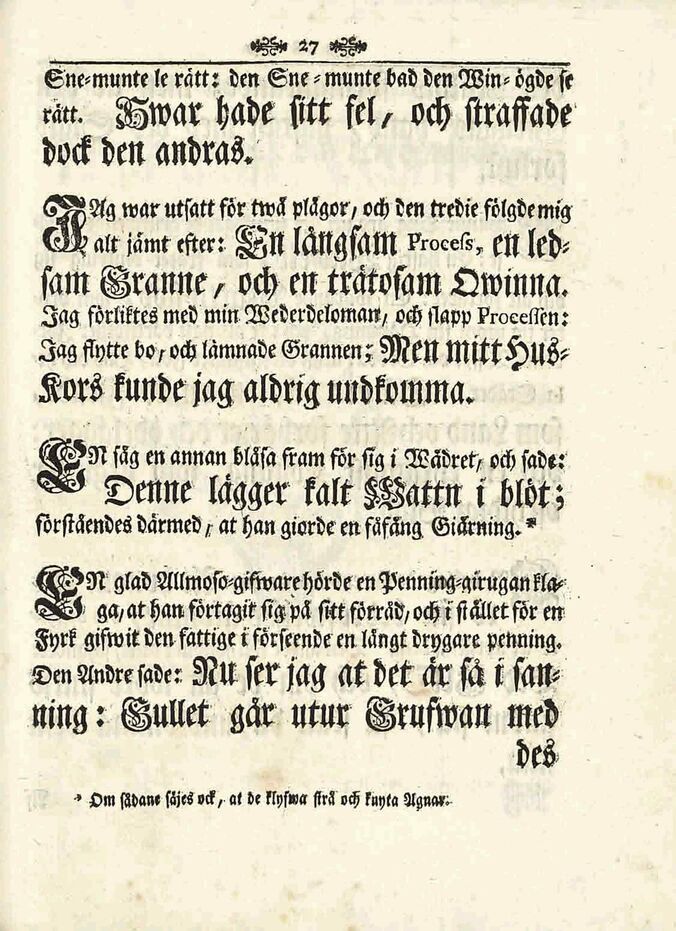 27
Sne-munte le rätt: den Sne-munte bad den Win-ögde se
rätt. Hwar hade sitt fel, och straffade
dock den andras.
JAg war utsatt för twå plågor, och den tredie fölgde mig
alt jämt efter: En långsam Process, en led-
sam Granne, och en trätosam Qwinna.
Jag förliktes med min Wederdeloman, och slapp Processen:
Jag flytte bo, och lämnade Grannen; Men mitt Hus-
Kors kunde jag aldrig undkomma.
EN såg en annan blåsa fram för sig i Wädret, och sade:
Denne lägger kalt Wattn i blöt;
förståendes därmed, at han giorde en fåfäng Giärning.*
EN glad Allmoso-gifware hörde en Penning-girugan kla-
ga, at han förtagit sig på sitt förråd, och i stället för en
Fyrk gifwit den fattige i förseende en långt drygare penning.
Den Andre sade: Nu ser jag at det är så i san-
ning: Gullet går utur Grufwan med
des
* Om sådane säjes ock, at de klyfwa strå och knyta Agnar.